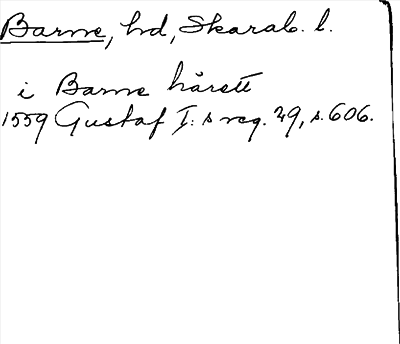 Barne, hd, Skarab. l.
i Barne häratt
1559 Gustaf I: s reg. 29, s. 606.